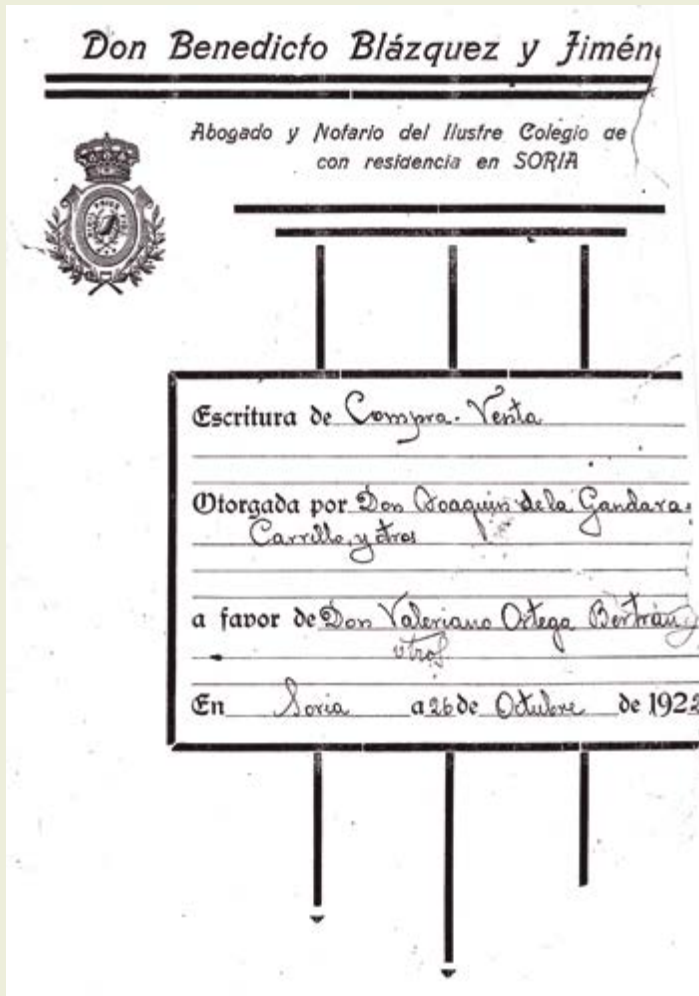 Don Benedicto Blázquez y Jiméne
Abogado y Notario del Ilustre Colegio de
con residencia en SORIA
Escritura de Compra-Venta
Otorgada por Don Joaquin de la Gandara
Carrillo, y otros
a favor de Don Valeriano Ortega Bertrán y
otros
En Soria a 26 de Octubre de 1922